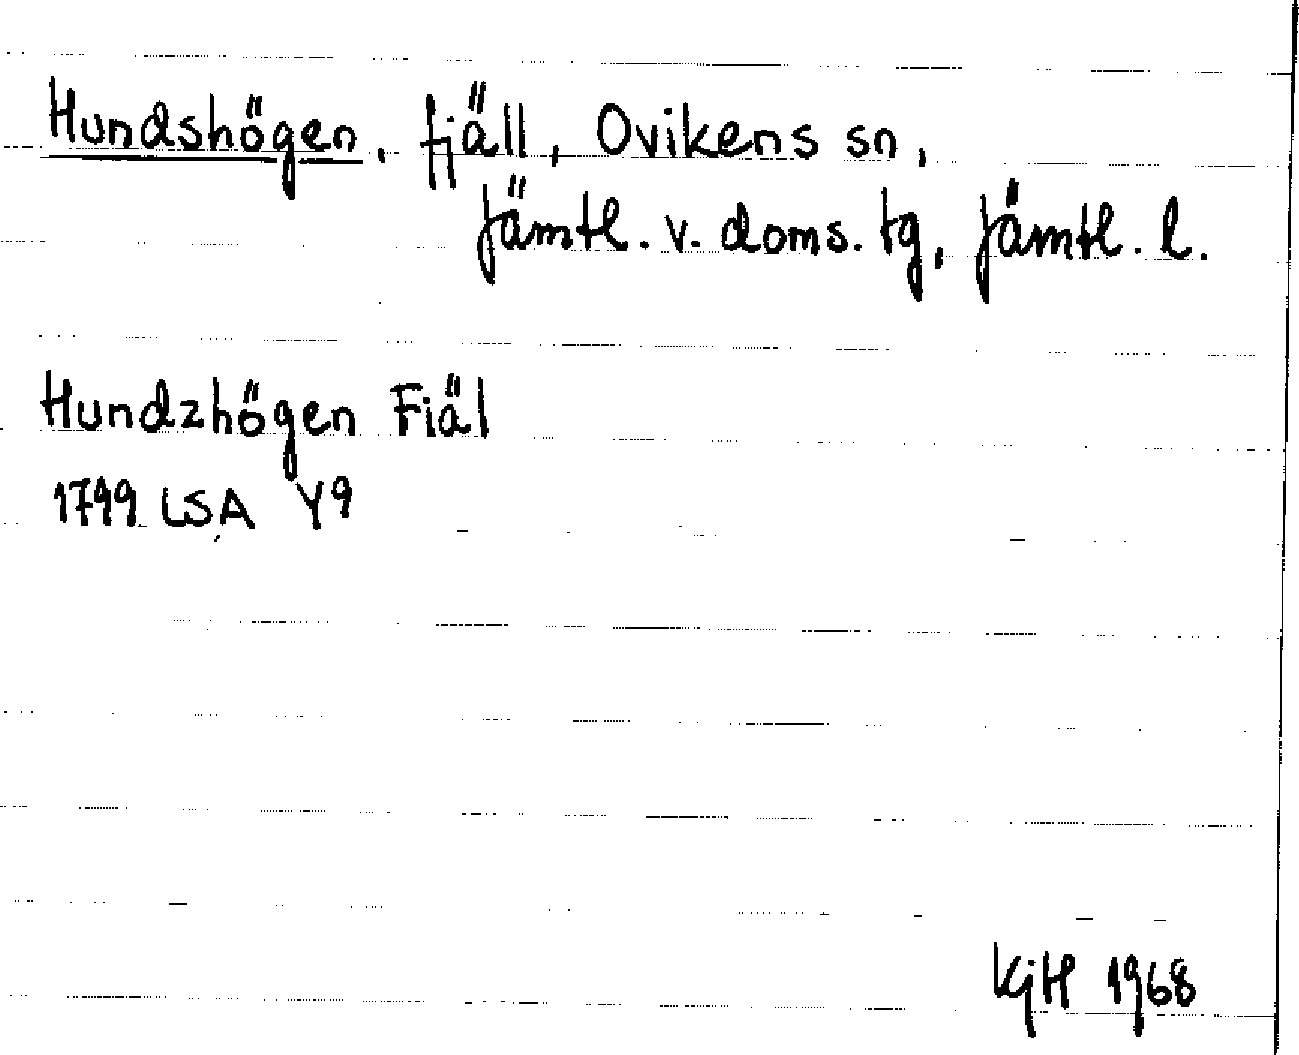 Hundshögen, fjäll, Ovikens sn,
Jämtl. v. doms. tg, Jämtl. l.
Hundzhögen Fiäl
1799 LSA Y9
KjH 1968